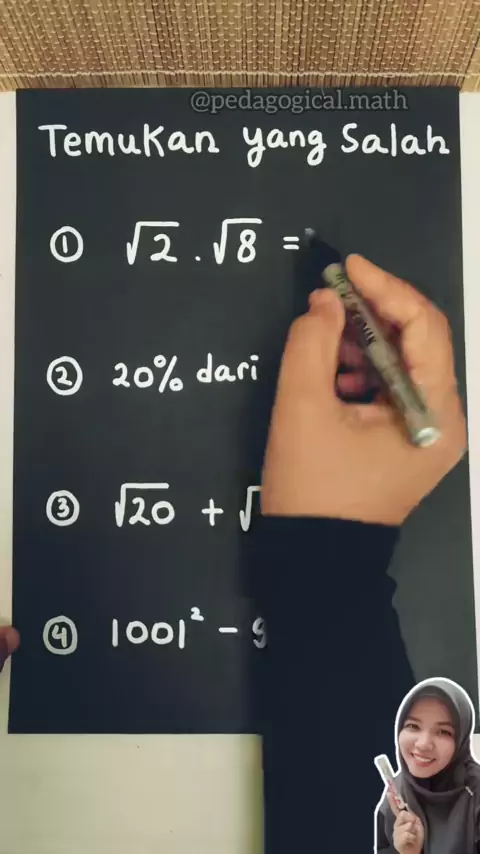 @pedagogical.math
Temukan yang Salah
① √2 . √8 =
② 20% dari
③ √20 + √
④ 1001² -